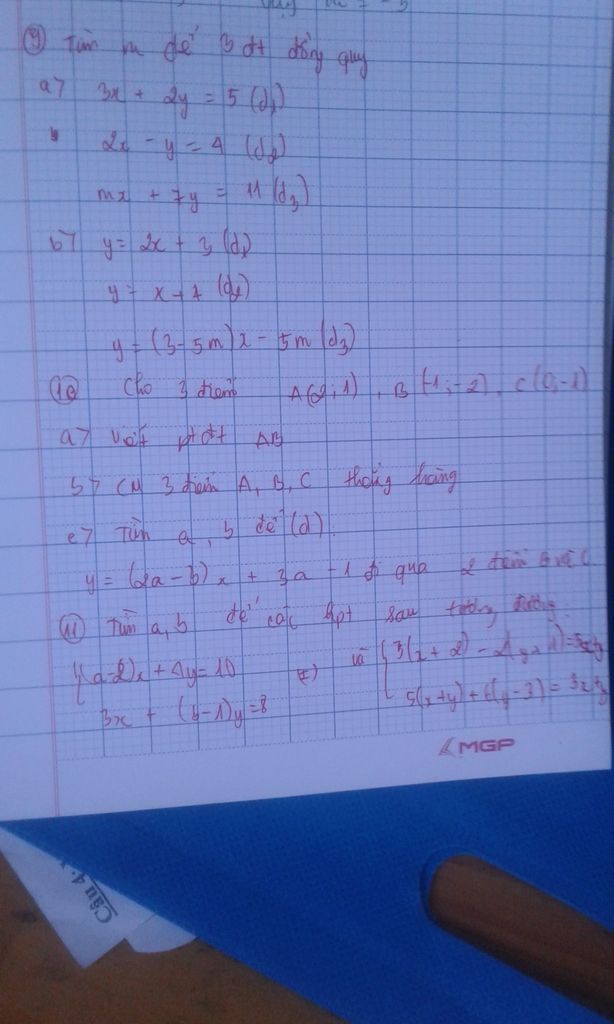 ⑨ Tìm m để 3 đt đồng quy
a> 3x + 2y = 5 (d₁)
2x - y = 4 (d₂)
mx + 7y = 11 (d₃)
b> y = 2x + 3 (d₁)
y = x + 1 (d₂)
y = (3 - 5m)x - 5m (d₃)
⑩ Cho 3 điểm A(2;1), B(-1;-2), C(0;-1)
a> Viết ptđt AB
b> CM 3 điểm A, B, C thẳng hàng
c> Tìm a, b để (d)
y = (2a - b)x + 3a - 1 đi qua 2 điểm B và C
⑪ Tìm a, b để các hpt sau tương đương
{(a-2)x + 4y = 10 (I) và {3(x + 2) -
3x + (b-1)y = 8 5(x+y) + 6(y-3) =
MGP
Câu 4.